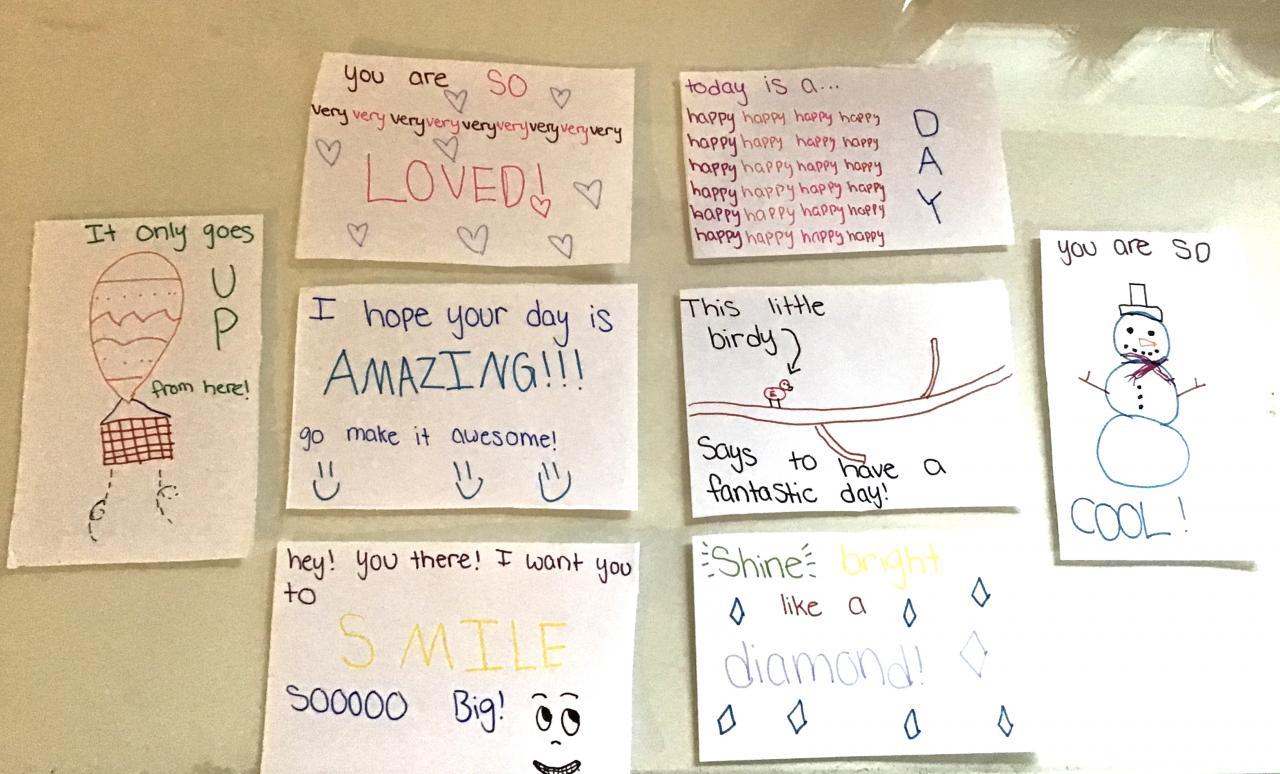 It only goes
U
P
from here!
you are SO
very very very very very very very very very
LOVED!
I hope your day is
AMAZING!!!
go make it awesome!
hey! you there! I want you
to
SMILE
SOOOOO Big!
today is a...
happy happy happy happy
happy happy happy happy
happy happy happy happy
happy happy happy happy
happy happy happy happy
happy happy happy happy
D
A
Y
This little
birdy
Says to have a
fantastic day!
Shine bright
like a
diamond!
you are SO
COOL!